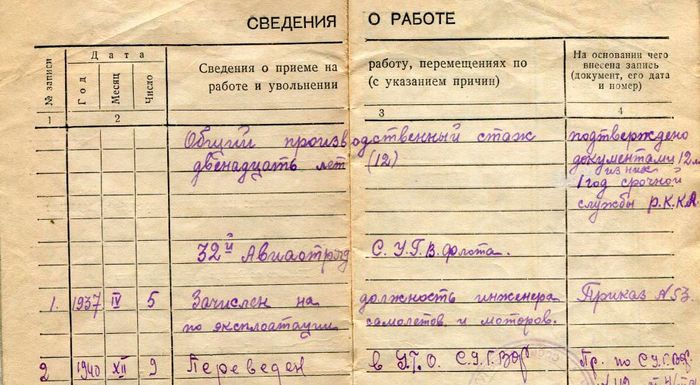 СВЕДЕНИЯ О РАБОТЕ
№ записи
Дата
Год
Месяц
Число
Сведения о приеме на работу, перемещениях по
работе и увольнении (с указанием причин)
На основании чего
внесена запись
(документ, его дата
и номер)
1 2 3 4
Общий производственный стаж
двенадцать лет (12)
подтверждено
документами 12 л
из них
1 год срочной
службы Р.К.К.А.
32й Авиаотряд С.У.Г.В.Флота.
1. 1937 IV 5 Зачислен на должность инженера Приказ №53.
по эксплоатации самолетов и моторов.
2 1940 XII 9 Переведен в У.Г.О. С.У.Г.В.Ф. Пр. по С.У.Г.В.